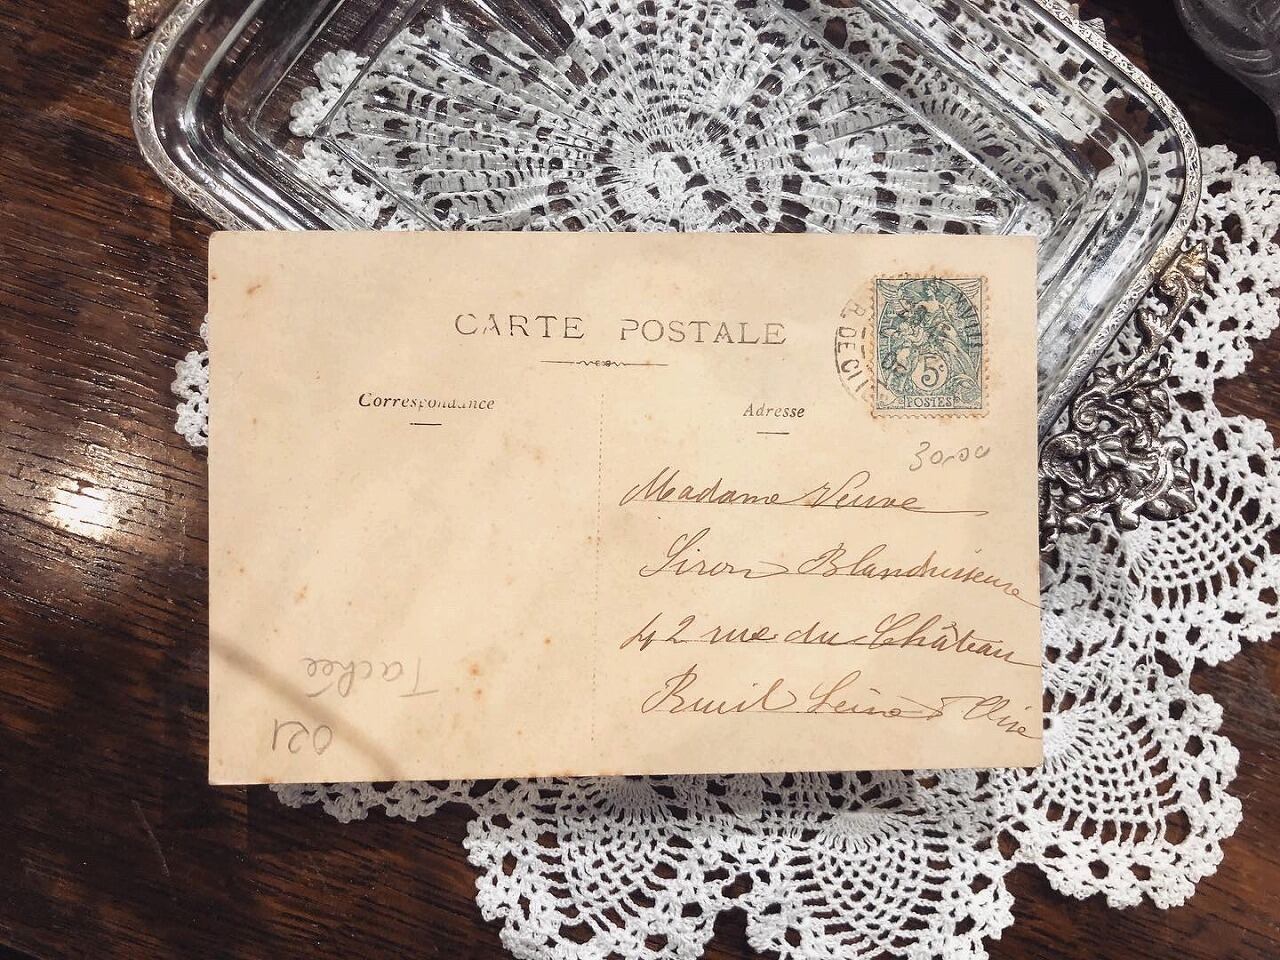 CARTE POSTALE
Correspondance
Adresse
5c
POSTES
R. DE
30,00
Madame Veuve
Siron Blanchisseuse
42 rue du Château
Rueil Seine & Oise
Tachée
021